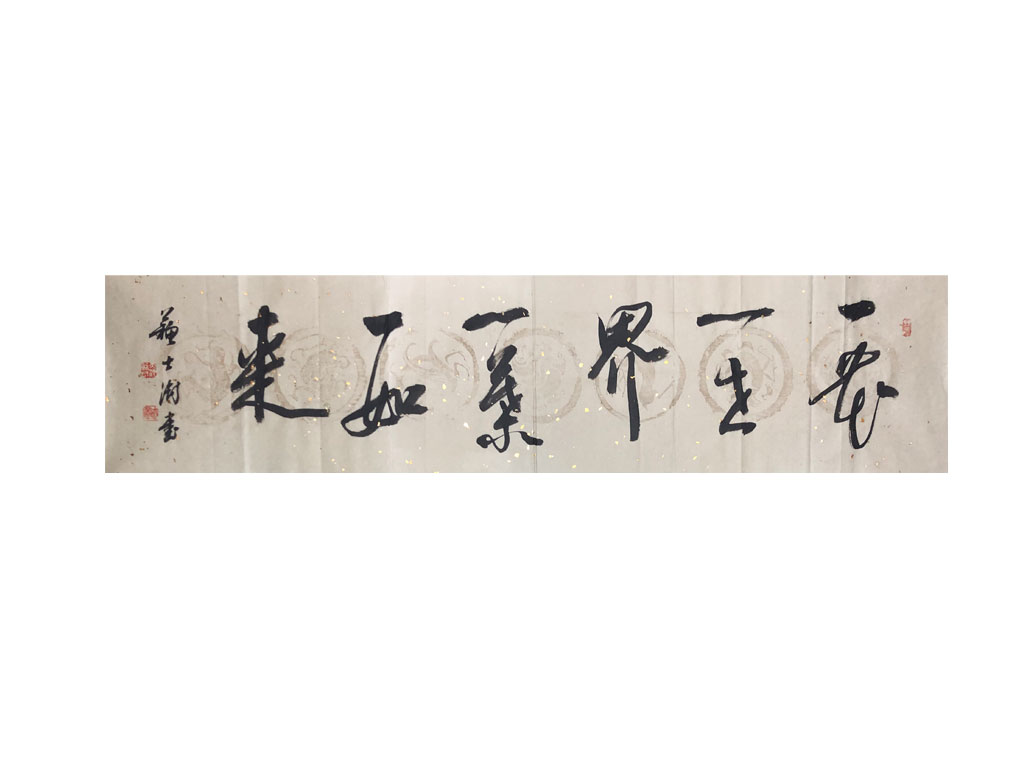 一花
一世
界
一葉
一如
来
蘇士澍書